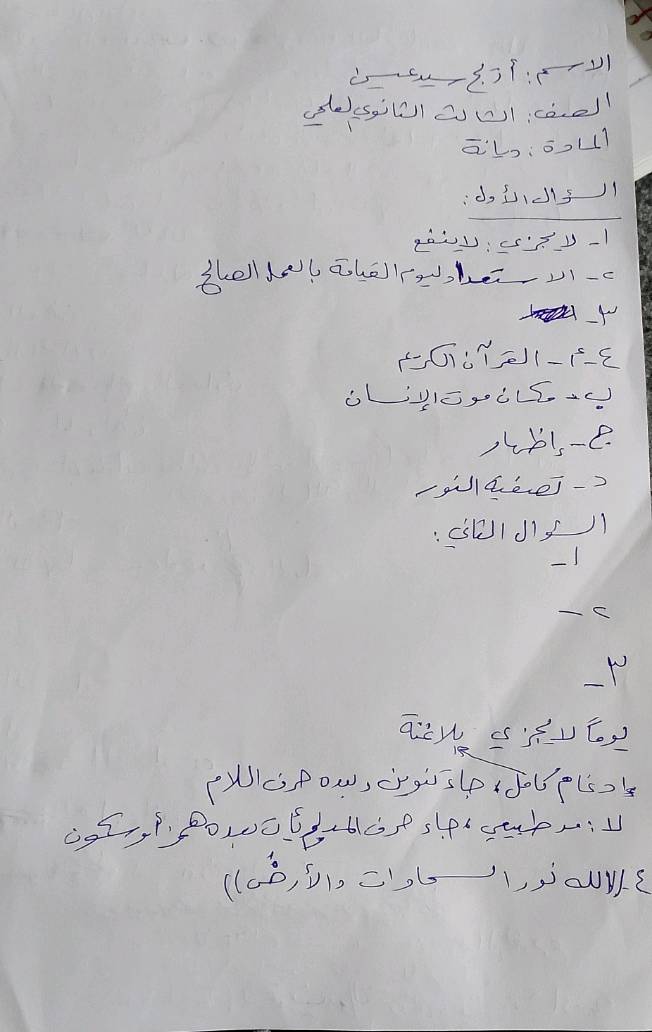 الاسم: أريج سيد عيسى
الصف: الثالث الثانوي العلمي
المادة: ديانة
السؤال الأول:
١- لا يجزي: لا ينفع
٢- الاستعداد ليوم القيامة بالعمل الصالح
٣-
٤- أ- القرآن الكريم
ب- مكان موت الإنسان
ج- إظهار
د- تصفية النور
السؤال الثاني:
١-
٢-
٣-
يوماً لا يجزي بلا غنة
إدغام كامل، جاء تنوين وبعده حرف اللام
لا: مد طبيعي، جاء حرف المد ولم يأت بعده همز أو سكون
٤- ((الله نور السماوات والأرض))